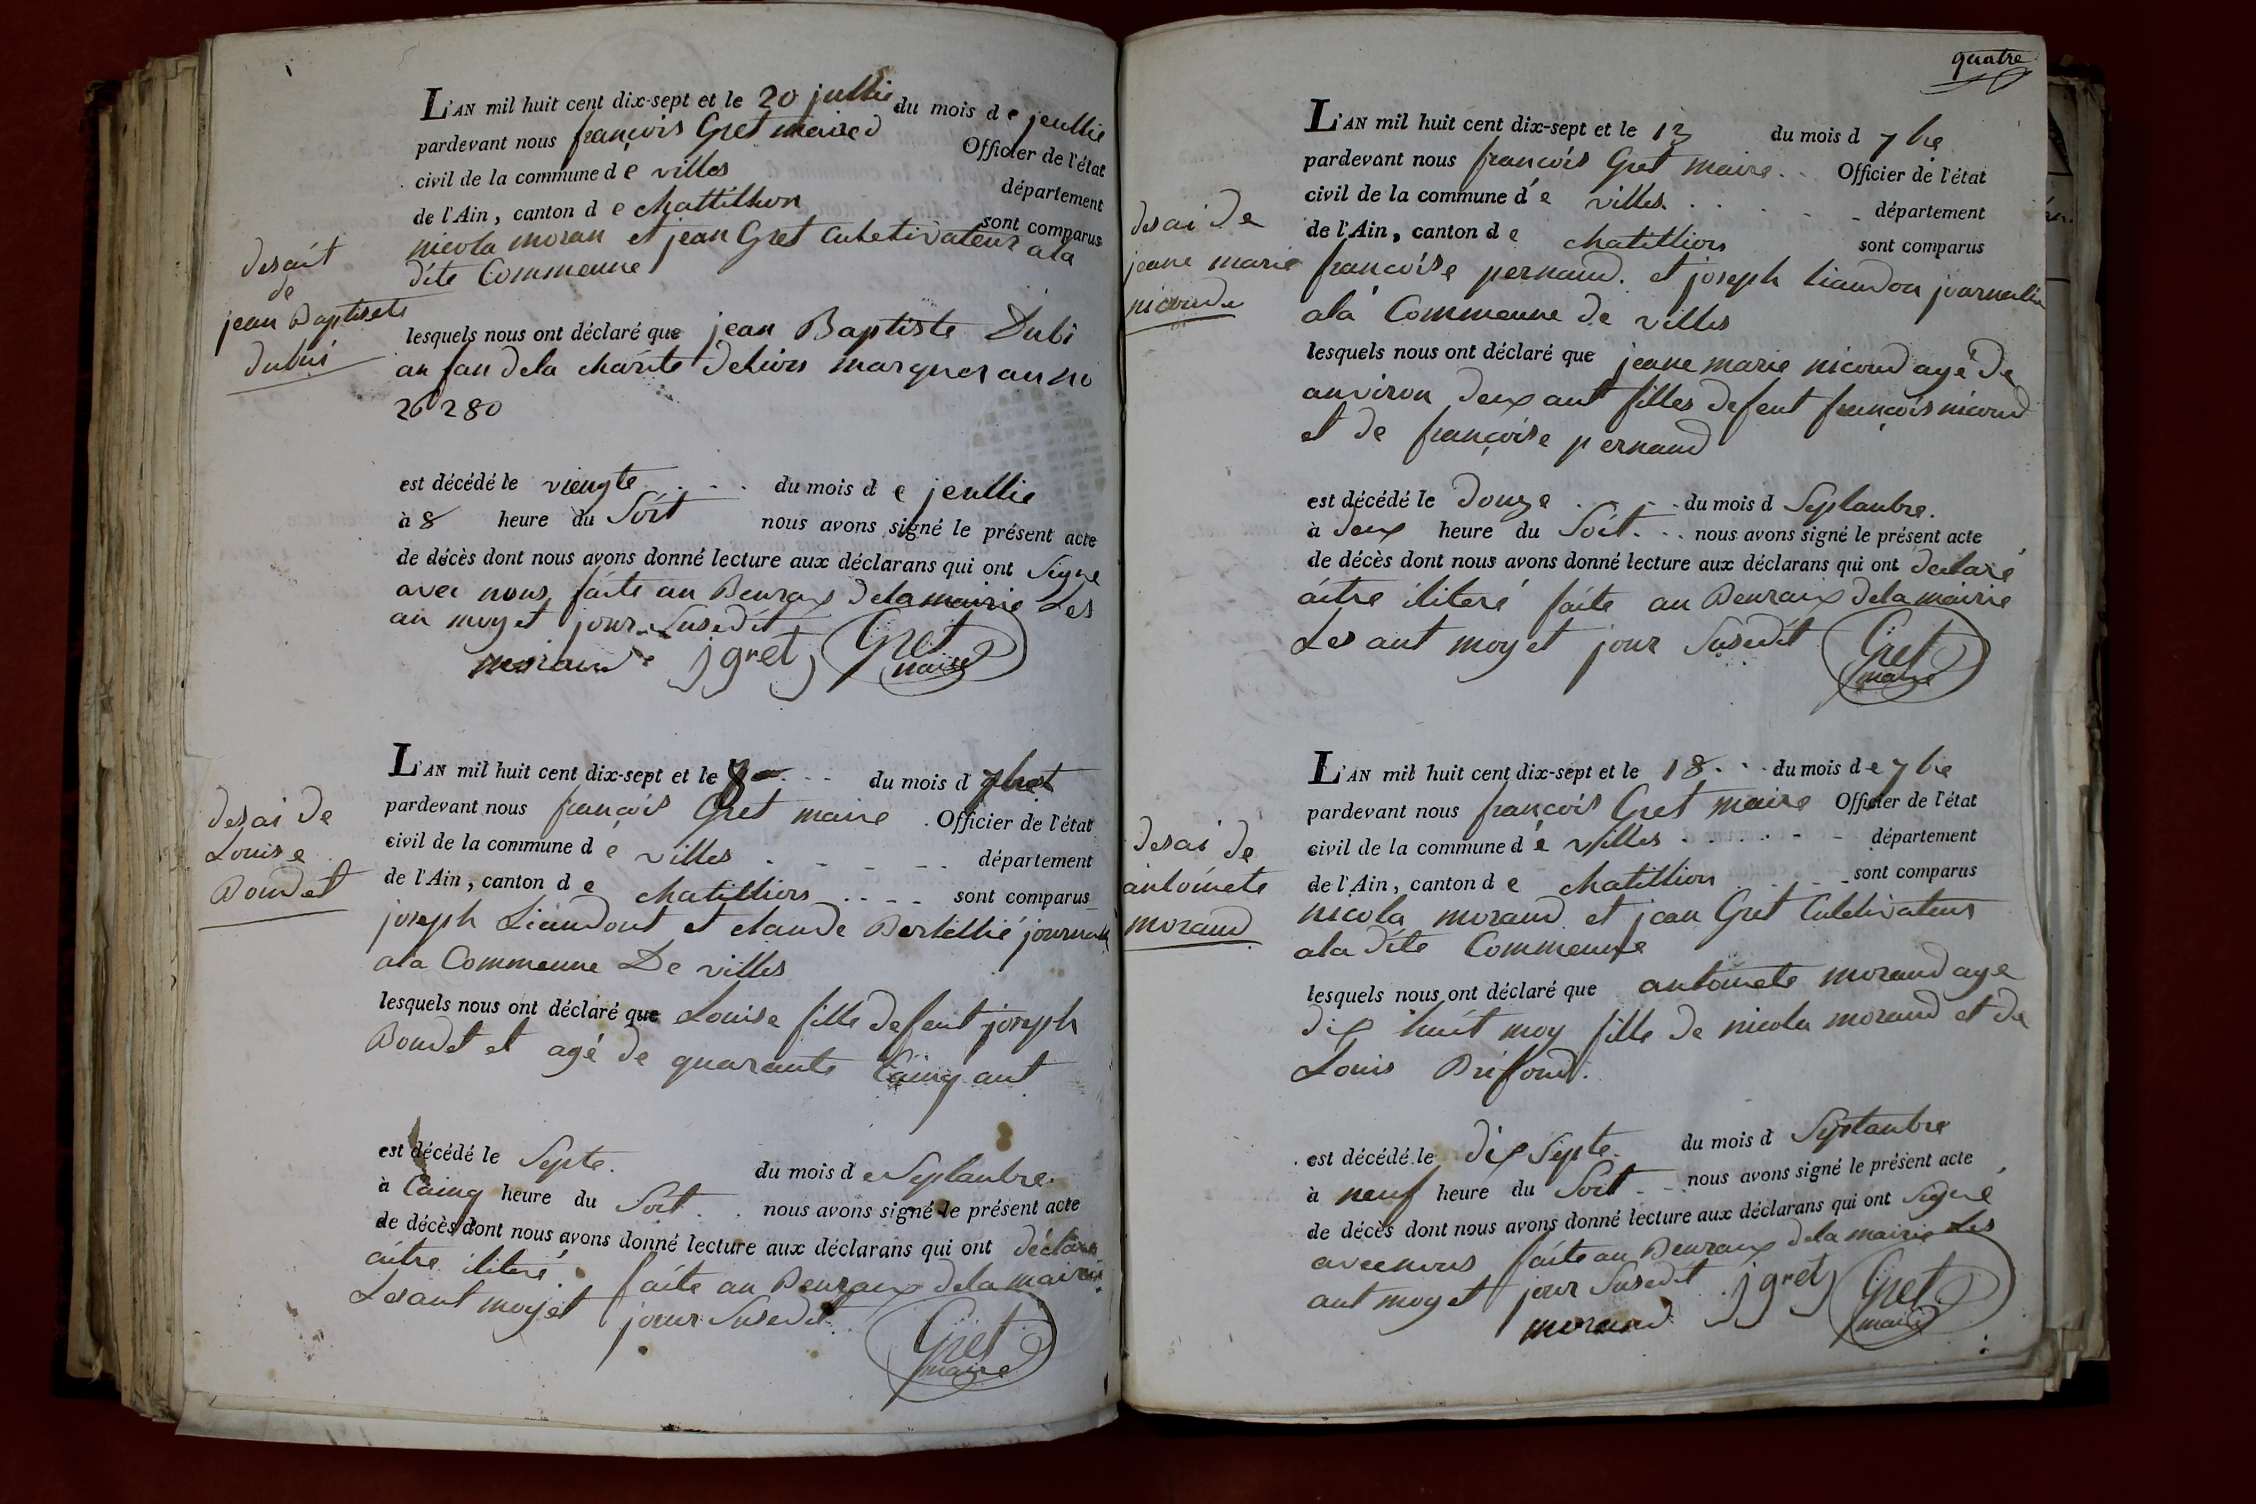 L'AN mil huit cent dix-sept et le 20 jullie du mois d e jeullie
pardevant nous françois Gret maire Officier de l'état
civil de la commune d e villes département
de l'Ain, canton d e chattillion sont comparus
nicola moran et jean Gret culetivateur a la
dite Commeune
desait
de
jean Baptiste
dubui
lesquels nous ont déclaré que jean Baptiste Dubi
an fan dela charite delion marquer au no
26280
est décédé le viengte du mois d e jeullie
à 8 heure du Soit nous avons signé le présent acte
de décès dont nous avons donné lecture aux déclarans qui ont Signe
avec nous faite au Beuraux dela mairie Les
an moy et jour Susedit
morand jgret Gret
maire
L'AN mil huit cent dix-sept et le 8 du mois d 7bret
pardevant nous françois Gret maire Officier de l'état
civil de la commune d é villes département
de l'Ain, canton d e chatillions sont comparus
desai de
Louise
Boudet
joseph Liaudout et claude Bertellié
a la Commeune De villes
lesquels nous ont déclaré que Louise fille defeut joseph
Boudet et agé de quarante Cainq ant
est décédé le Septe du mois d e Septanbre
à Cainq heure du Soit nous avons signé le présent acte
de décès dont nous avons donné lecture aux déclarans qui ont déclare
aitre iliteré faite au Beuraux dela mairie
Les ant moy et jour Susedit
Gret
maire
quatre
L'AN mil huit cent dix-sept et le 13 du mois d 7bre
pardevant nous françois Gret maire Officier de l'état
civil de la commune d é villes département
de l'Ain, canton d e chatillions sont comparus
desai de
jeane marie
nicoude
françoise pernaud et joseph liaudon journalie
a la Commeune de villes
lesquels nous ont déclaré que jeane marie nicoud agé de
anviron deux ant filles defeut françois nicoud
et de françoise pernaud
est décédé le douze du mois d Septanbre
à deux heure du Soit nous avons signé le présent acte
de décès dont nous avons donné lecture aux déclarans qui ont declaré
aitre iliteré faite au Beuraux dela mairie
Les ant moy et jour Susedit Gret
maire
L'AN mil huit cent dix-sept et le 18 du mois d e 7bre
pardevant nous françois Gret maire Officier de l'état
civil de la commune d é villes département
de l'Ain, canton d e chatillion sont comparus
desai de
antoinete
moraud
nicola moraud et jean Gret Culetivateur
a la dite Commeune
lesquels nous ont déclaré que antoinete moraud age
dix huit moy fille de nicola moraud et de
Louis Brifoud
est décédé le dix Septe du mois d Septanbre
à neuf heure du Soit nous avons signé le présent acte
de décès dont nous avons donné lecture aux déclarans qui ont signé
avec nous faite au Beuraux dela mairie Les
ant moy et jour Susedit jgret Gret
morand maire